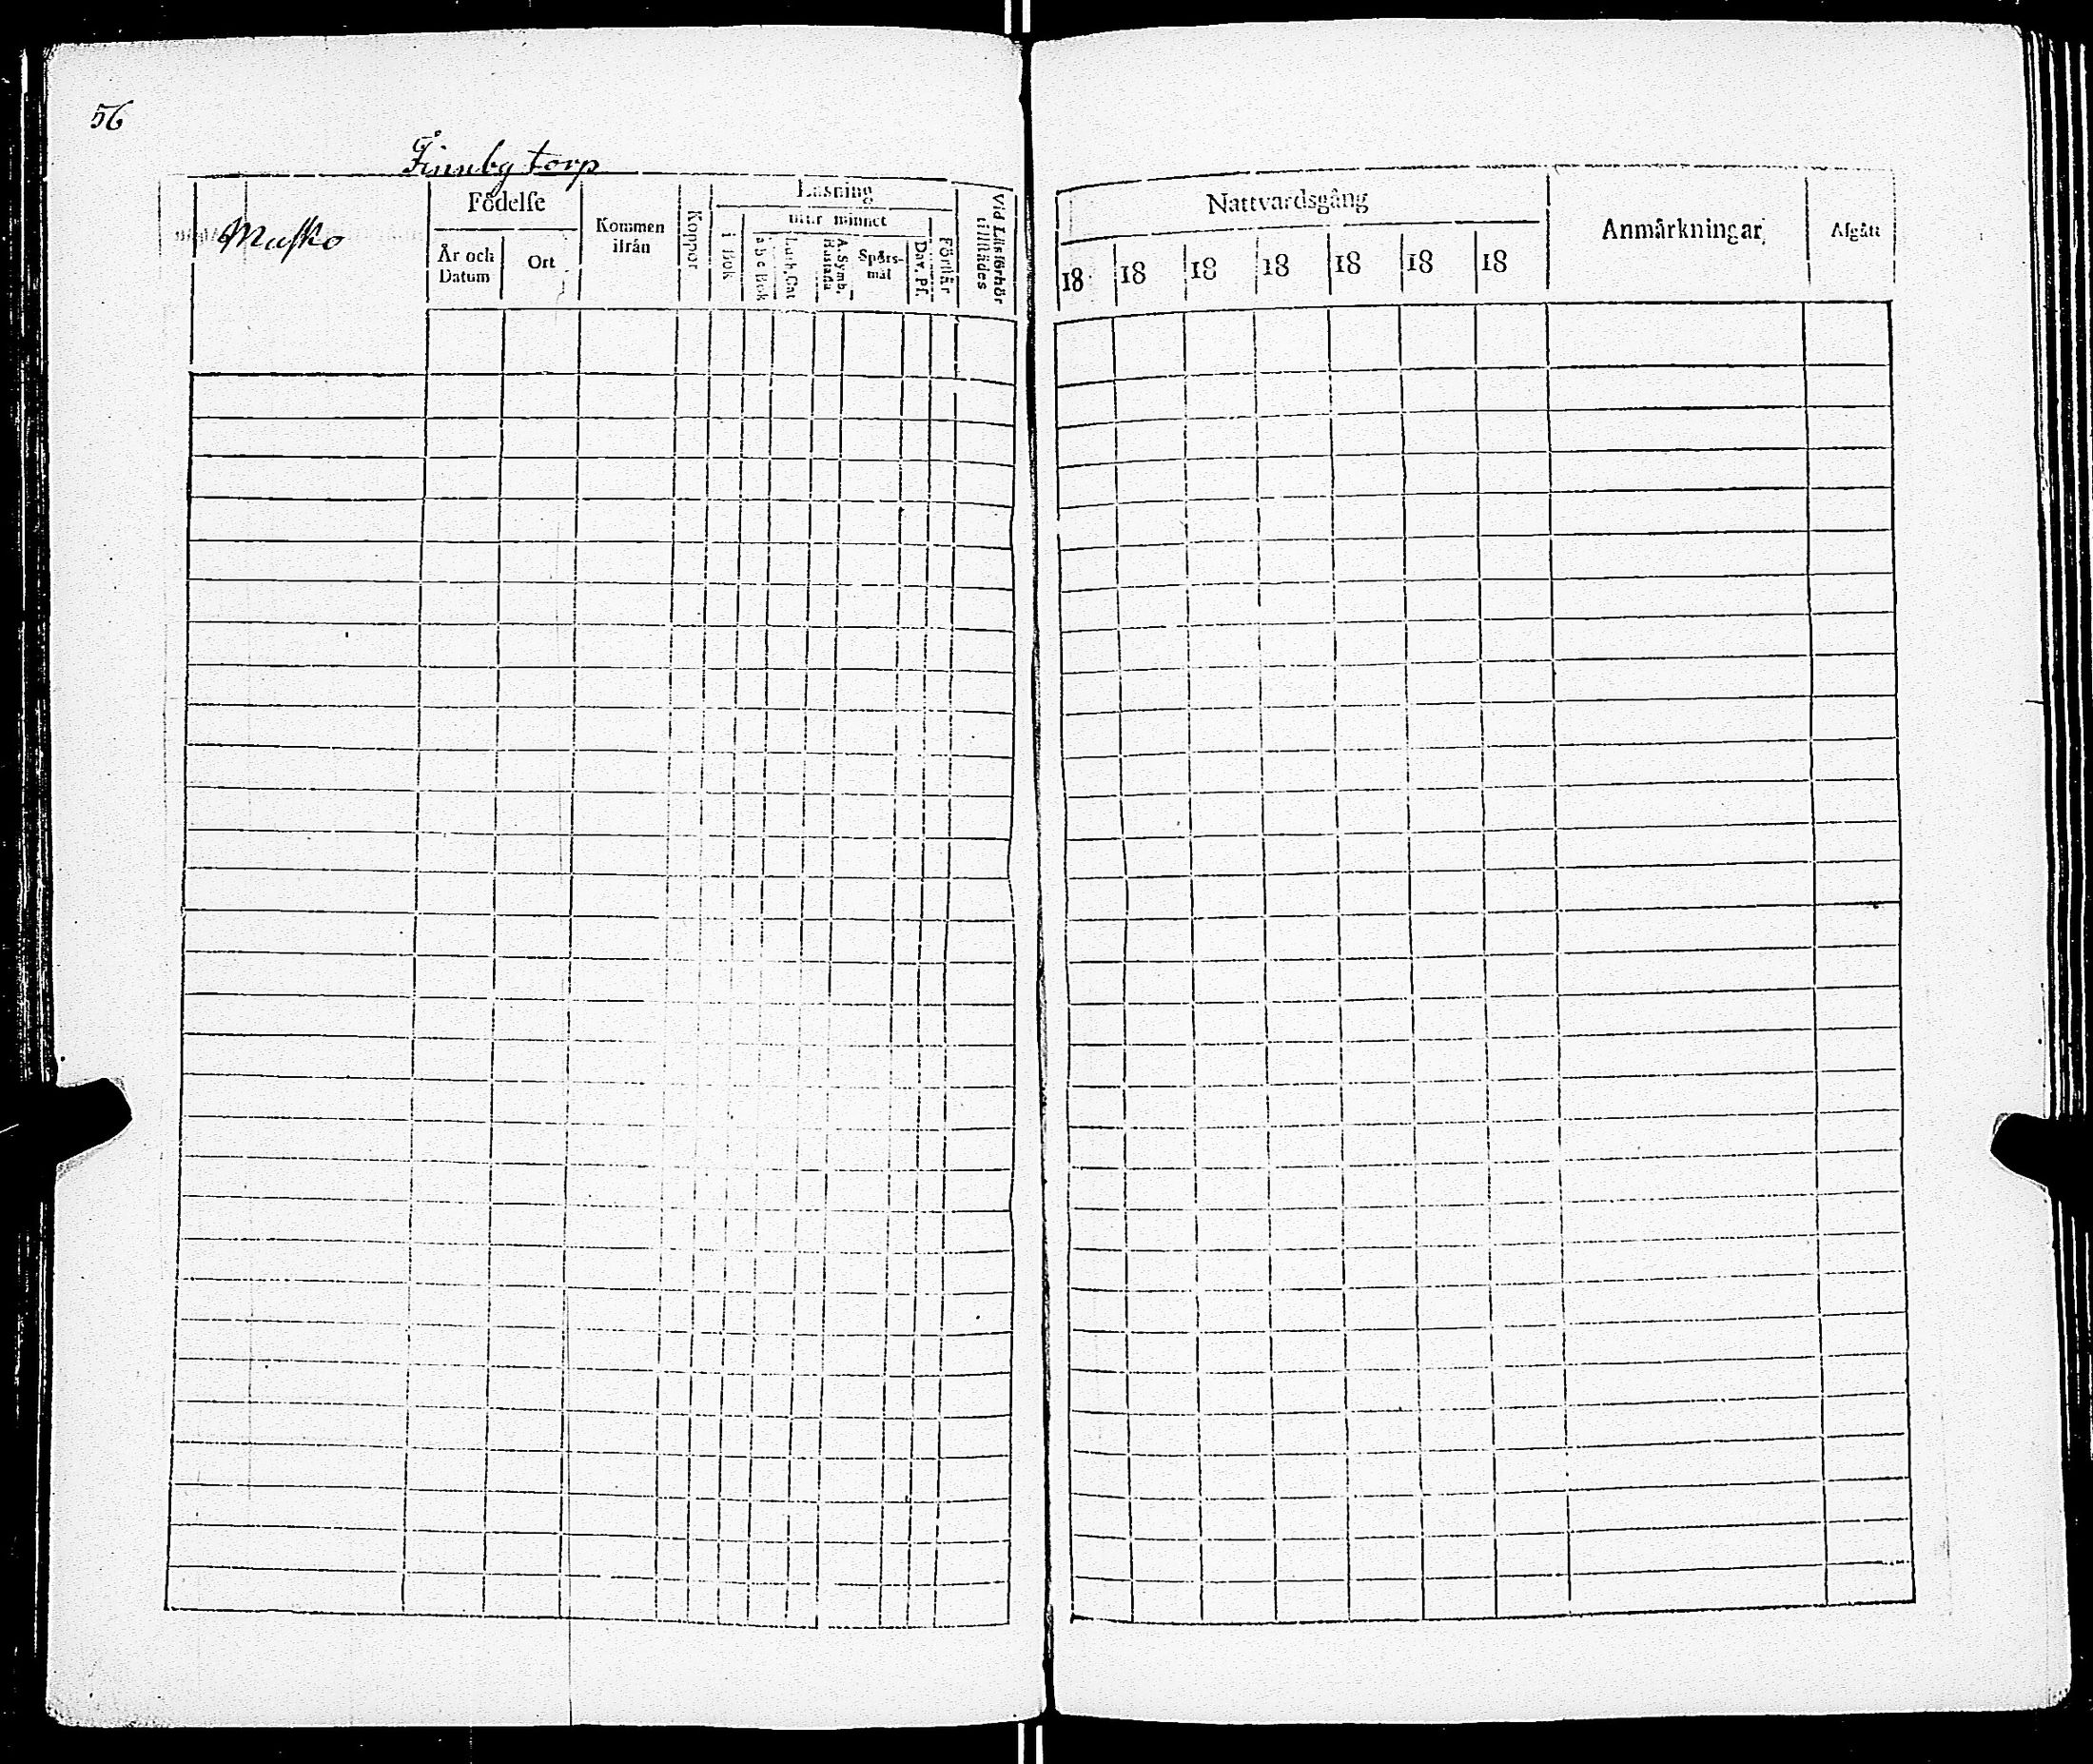 56
Finnby torp
Muſko
Fődelſe
År och Datum
Ort
Kommen ifrån
Koppor
Läsning
i Bok
utur minnet
a b c Bok
Luth. Cat
A. Symb. Hustafla
Spårs-mål
Dav. Pſ.
Förſtår
Vid Läsförhör tillſtädes
Nattvardsgång
18 18 18 18 18 18 18
Anmärkningar
Afgått